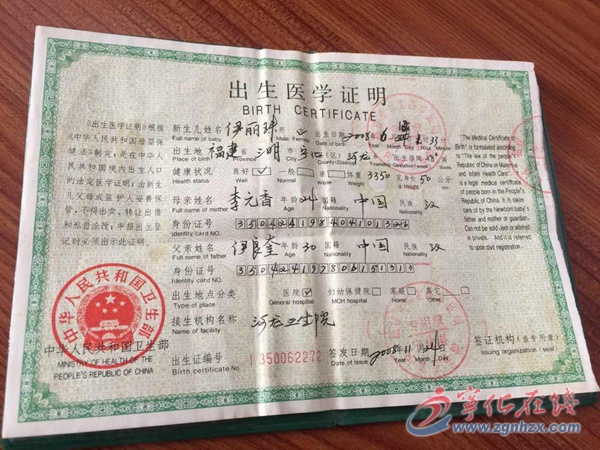 出生医学证明
BIRTH CERTIFICATE
《出生医学证明》根据
《中华人民共和国母婴保
健法》制定,是在中华人
民共和国境内出生人口
的法定医学证明;由新生
儿父母或监护人妥善保
管,不得出卖、转让出借
和私自涂改;申报出生登
记时必须出示此证明。
新生儿姓名 伊丽珠 男 女 出生日期 2008年6月 时33分
Full name of baby Male Female Date of birth Year Month Day Hour Minute
出生地 福建省 三明市 宁化县(区) 河龙 出生孕周 周
Place of birth Province City County Township Gestation Week
健康状况 良好 一般 差 体重 3350克 身长 50公分
Health status Well Weight Height cm
母亲姓名 李元香 年龄 24 国籍 中国 民族 汉
Full name of mother Age Nationality Nationality
身份证号
Identity card NO.
父亲姓名 伊良奎 年龄 30 国籍 中国 民族 汉
Full name of father Age Nationality Nationality
身份证号
Identity card NO.
出生地点分类 医院 妇幼保健院 家庭 其它
Type of place General hospital MCH hospital Home Other
接生机构名称 河龙卫生院
Name of facility
出生证编号 350062272 签发日期 2008年11月 日
Birth certificate No. Date of issue Year Month Day
The Medical Certificate of
Birth is formulated according
to "The law of the people's
Republic of China on Maternal
and Infant Health Care". It is a
legal medical certificate of
people born in the People's
Republic of China. It is taken
care of by the Newborn baby's
father and mother or guardian.
Can not be sold ,lent or altered
in private. And it is referred
upon civil registration.
中华人民共和国卫生部
中华人民共和国卫生部
MINISTRY OF HEALTH OF THE
PEOPLE'S REPUBLIC OF CHINA
签证机构(业专用章)
Issuing organization (seal)
宁化在线
www.zgnhzx.com